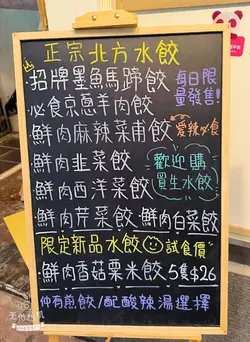 正宗北方水餃
·招牌墨魚馬蹄餃
每日限量發售!
·必食京蔥羊肉餃
·鮮肉麻辣菜甫餃
愛辣必食
·鮮肉韭菜餃
歡迎購買生水餃
·鮮肉西洋菜餃
·鮮肉芹菜餃·鮮肉白菜餃
限定新品水餃 試食價
·鮮肉香菇粟米餃 5隻$26
仲有煎餃/配酸辣湯選擇